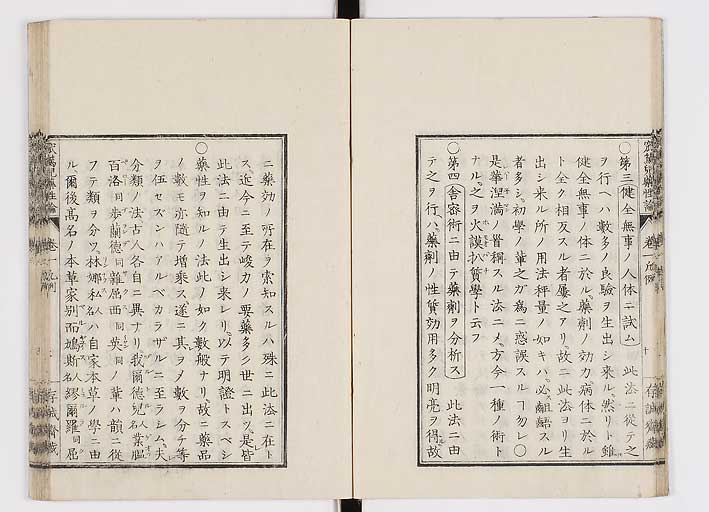 〇第三健全無事ノ人体ニ試ム 此法ニ從テ之
ヲ行ヘハ數多ノ良驗ヲ生出シ来ル然リト雖
健全無事ノ体ニ於ル藥劑ノ効力病体ニ於ル
ト全ク相反スル者屢之アリ故ニ此法ヨリ生
出シ来ル所ノ用法秤量ノ如キハ必齟齬スル
者多シ初學ノ輩之カ爲ニ惑誤スルヿ勿レ〇
是華涅満ノ嘗稱スル法ニメ方今一種ノ術ト
ナル之ヲ火謨扒質學ト云フ
〇第四舎密術ニ由テ藥劑ヲ分析ス 此法ニ由
テ之ヲ行ハ藥劑ノ性質効用多ク明亮ヲ得故
ニ藥効ノ所在ヲ索知スルハ殊ニ此法ニ在ト
ス近今ニ至テ峻力ノ要藥多ク世ニ出ツ是皆
此法ニ由テ生出シ来レリ以テ明證トスベシ
〇藥性ヲ知ルノ法此ノ如ク數般ナリ故ニ藥品
ノ數モ亦隨テ増乘ス遂ニ其ヲメ數ヲ分チ等
ヲ伍セズンハアルベカラザルニ至ラシム夫
分類ノ法古人各自ニ異ナリ我爾德兒人名業膃
百洛同歩蘭德同雜屈西同英同ノ輩ハ韻ニ從
フテ類ヲ分ツ林娜私人名ハ自家本草ノ學ニ由
ル爾後高名ノ本草家別而鳩斯人名繆爾羅同屈
卷一 凡例
存誠齋蔵
卷一 凡例
存誠齋蔵